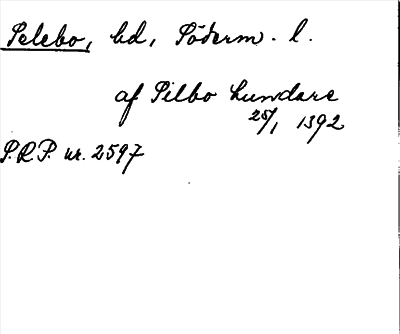 Selebo, hd, Söderm. l.
af Silbo hundare
25/1 1392
S.R.P. nr. 2597